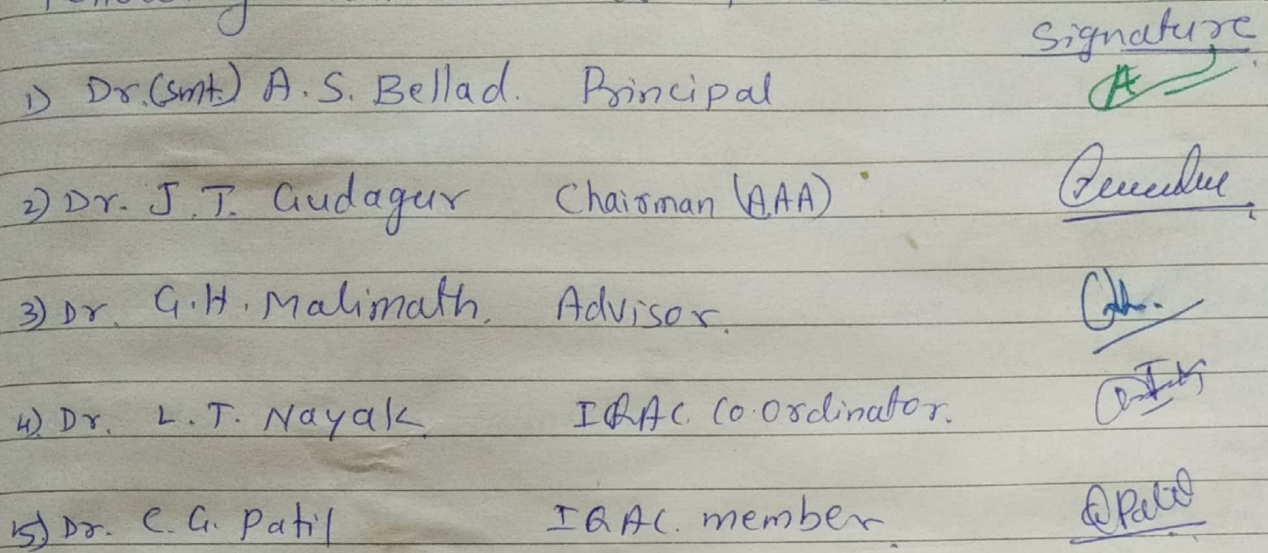 Signature
1) Dr. (Smt.) A. S. Bellad. Principal
2) Dr. J. T. Gudagur Chairman (AAA)
3) Dr. G. H. Malimath. Advisor.
4) Dr. L. T. Nayak IQAC. Co-ordinator.
5) Dr. C. G. Patil IQAC. member